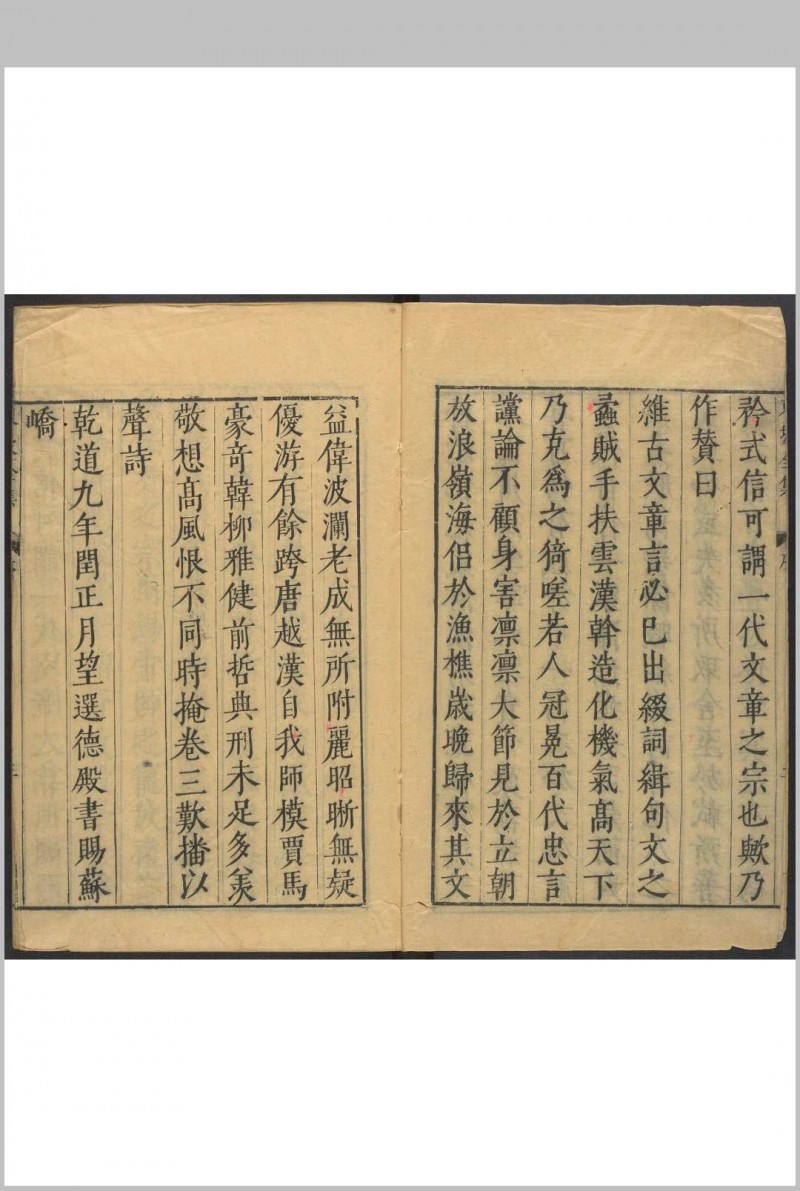 矜式信可謂一代文章之宗也歟乃
作贊曰
維古文章言必已出綴詞緝句文之
蟊賊手扶雲漢斡造化機氣高天下
乃克爲之猗嗟若人冠冕百代忠言
讜論不顧身害凛凛大節見於立朝
放浪嶺海侣於漁樵歲晚歸來其文
益偉波瀾老成無所附麗昭晣無疑
優游有餘跨唐越漢自我師模賈馬
豪奇韓柳雅健前哲典刑未足多羨
敬想高風恨不同時掩卷三歎播以
聲詩
乾道九年閏正月望選德殿書賜蘇
嶠